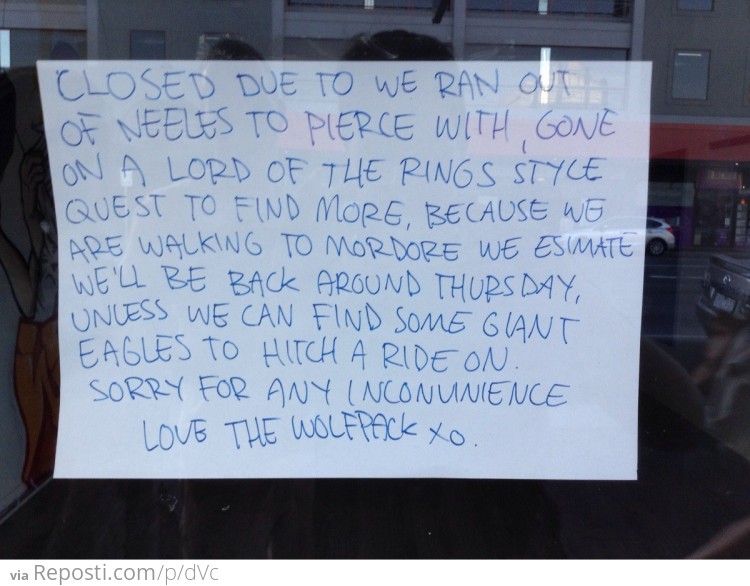 CLOSED DUE TO WE RAN OUT
OF NEELES TO PIERCE WITH, GONE
ON A LORD OF THE RINGS STYLE
QUEST TO FIND MORE, BECAUSE WE
ARE WALKING TO MORDORE WE ESIMATE
WE'LL BE BACK AROUND THURSDAY,
UNLESS WE CAN FIND SOME GIANT
EAGLES TO HITCH A RIDE ON.
SORRY FOR ANY INCONUNIENCE
LOVE THE WOLFPACK XO.
via Reposti.com/p/dVc